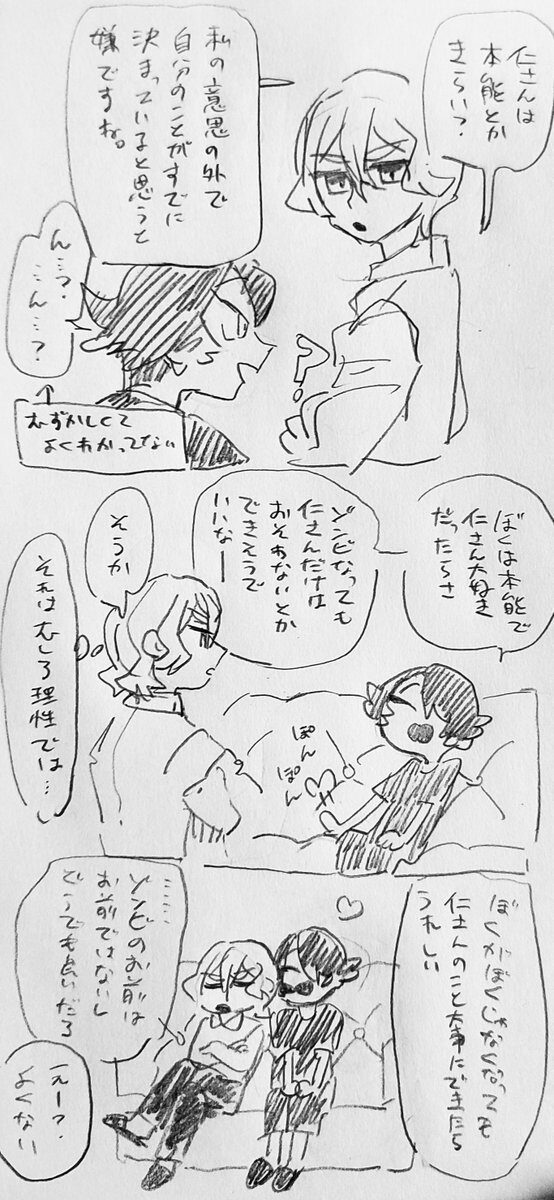 仁さんは
本能とか
きらい？
私の意思の外で
自分のことがすでに
決まっていると思うと
嫌ですね。
ん…？
…ん…？
むずかしくて
よくわかってない
ぼくは本能で
仁さん大好き
だったらさ
ゾンビなっても
仁さんだけは
おそわないとか
できそうで
いいなー
そうか
それはむしろ理性では…
ぽん
ぽん
ぼくがぼくじゃなくなっても
仁さんのこと大事にできたら
うれしい
……
ゾンビのお前は
お前ではないし
どうでも良いだろ
えー？
よくない